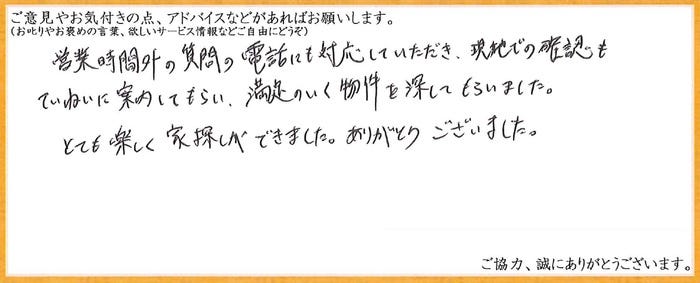 ご意見やお気付きの点、アドバイスなどがあればお願いします。
(お叱りやお褒めの言葉、欲しいサービス情報などご自由にどうぞ)
営業時間外の質問の電話にも対応していただき、現地での確認も
ていねいに案内してもらい、満足のいく物件を探してもらいました。
とても楽しく家探しができました。ありがとうございました。
ご協力、誠にありがとうございます。